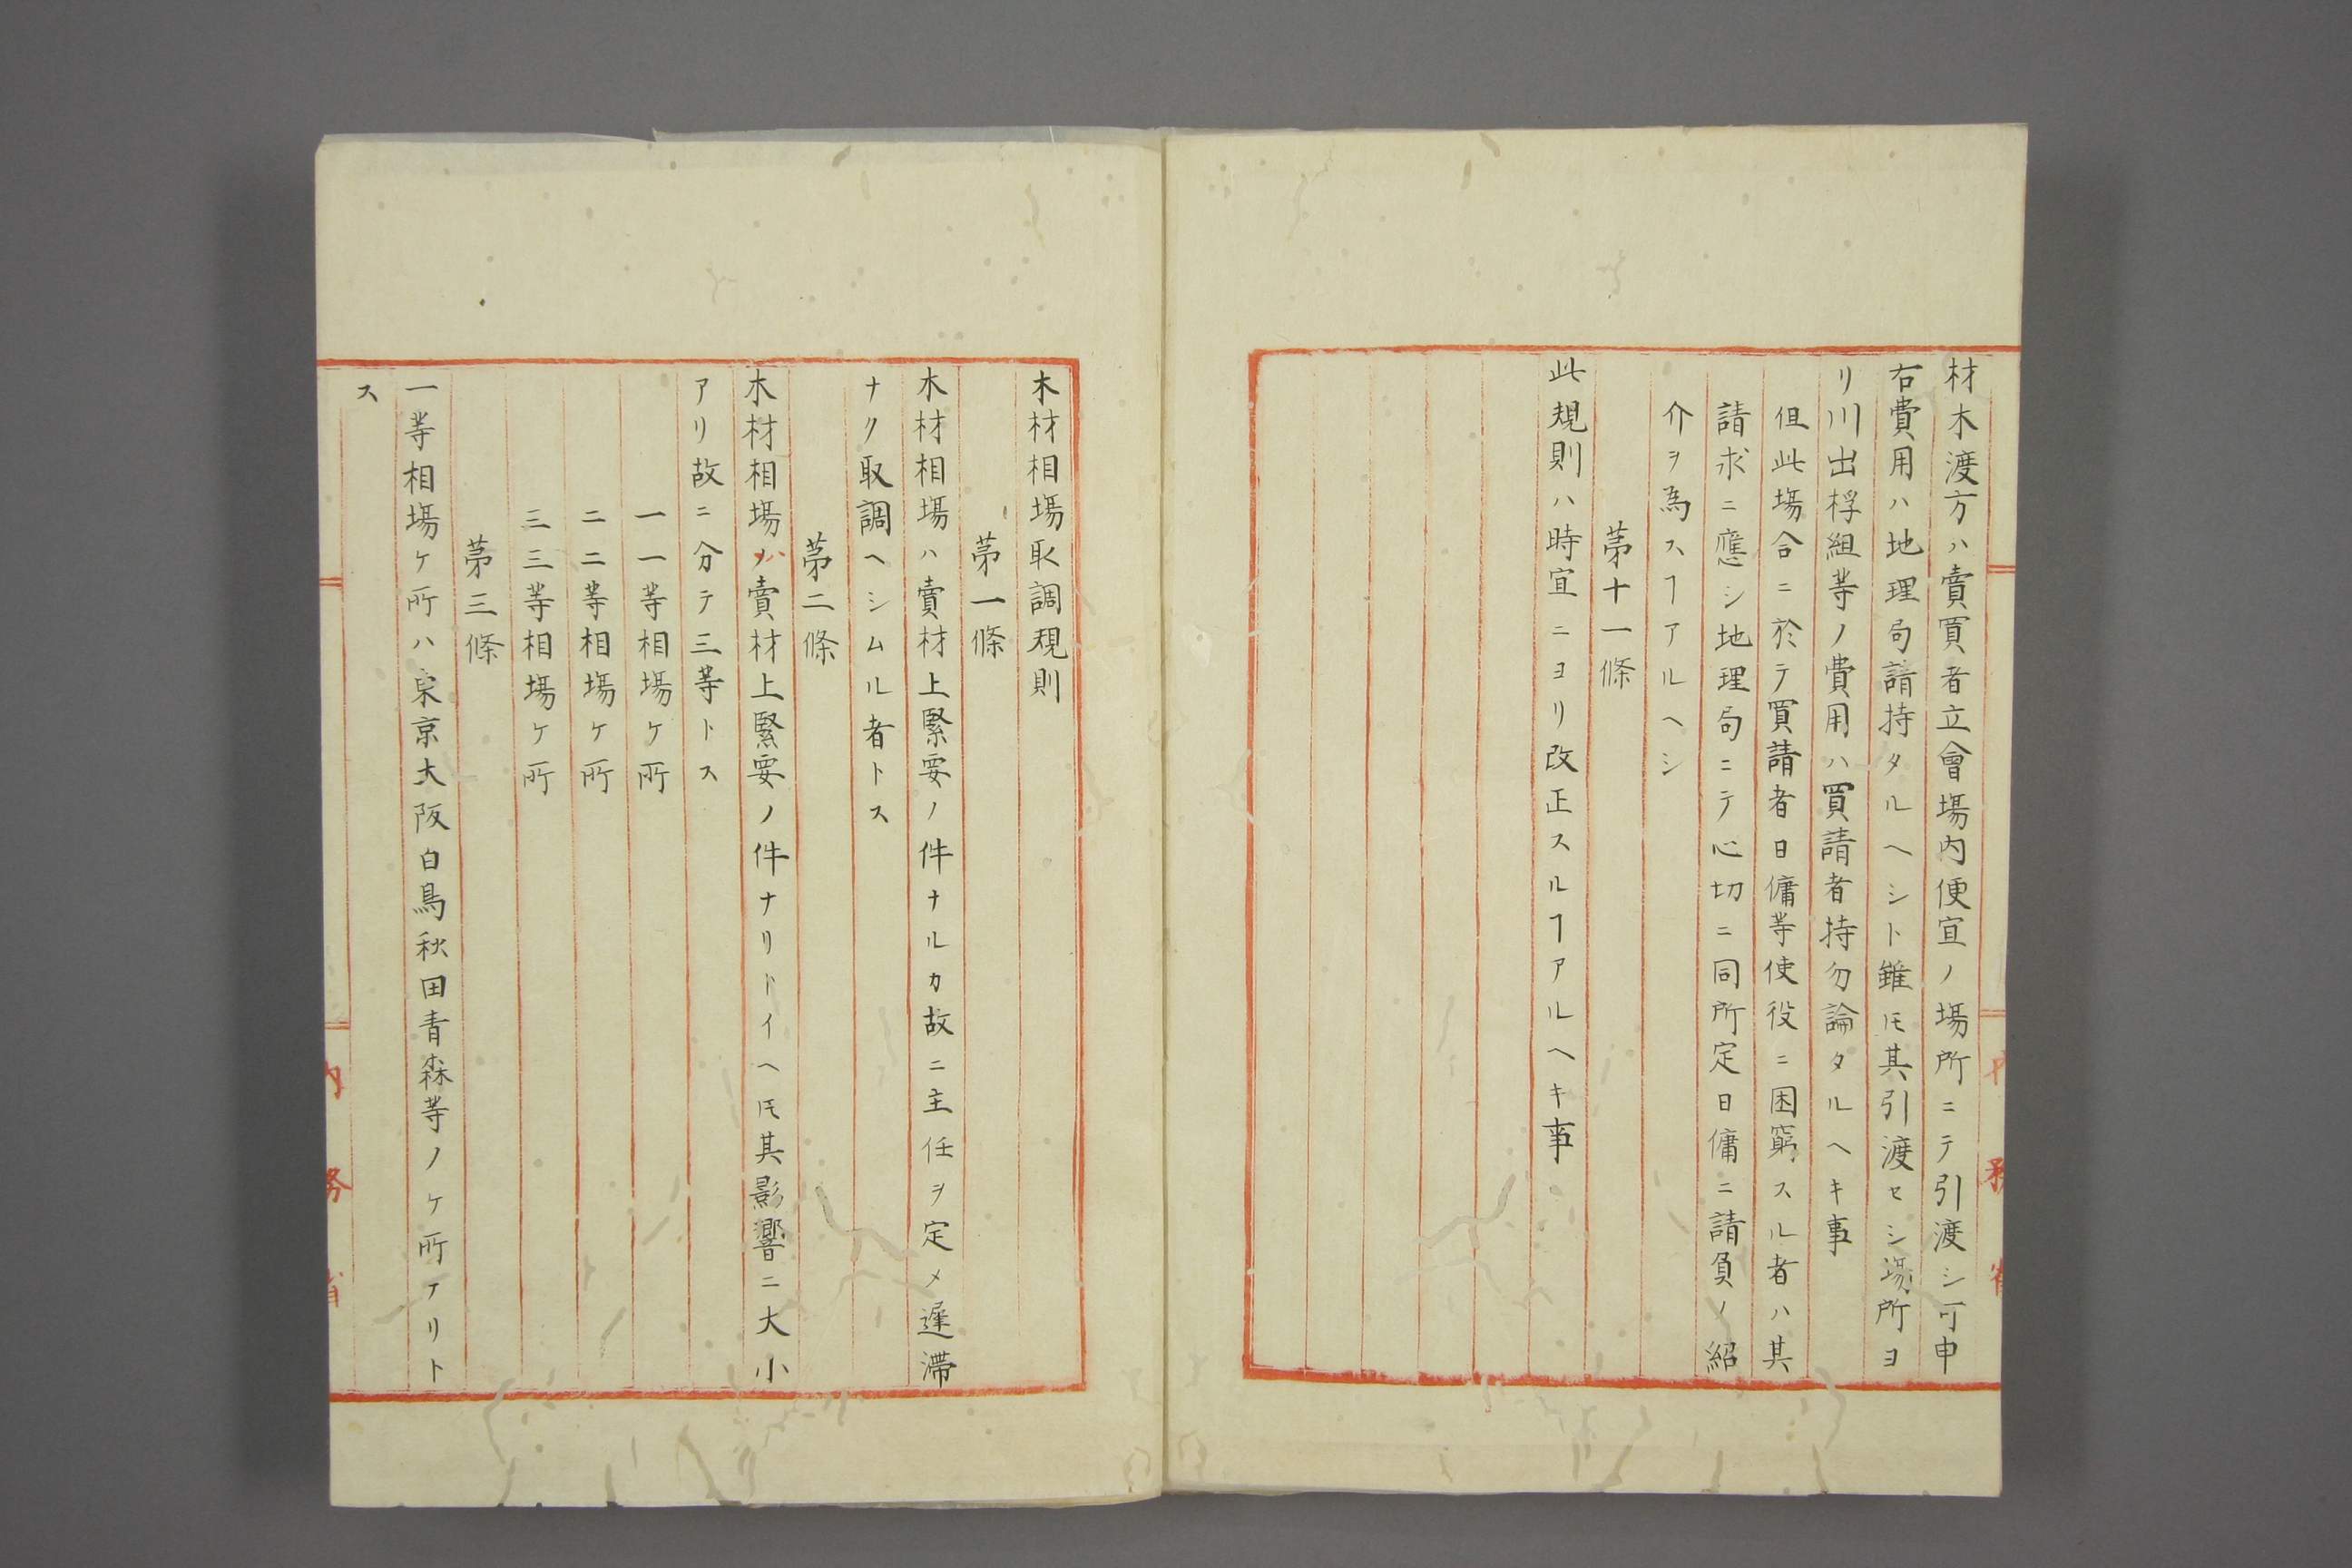 材木渡方ハ賣買者立會場内便宜ノ場所ニテ引渡シ可申
右費用ハ地理局請持タルヘシト雖𪜈其引渡セシ場所ヨ
リ川出桴組等ノ費用ハ買請者持勿論タルヘキ事
但此場合ニ於テ買請者日傭等使役ニ困窮スル者ハ其
請求ニ應シ地理局ニテ心切ニ同所定日傭ニ請負ノ紹
介ヲ為スヿアルヘシ
苐十一條
此規則ハ時宜ニヨリ改正スルヿアルヘキ事
木材相場取調規則
苐一條
木材相場ハ賣材上緊要ノ件ナルカ故ニ主任ヲ定メ遅滞
ナク取調ヘシムル者トス
苐二條
木材相場ハ賣材上緊要ノ件ナリトイヘ𪜈其影響ニ大小
アリ故ニ分テ三等トス
一一等相場ケ所
二二等相場ケ所
三三等相場ケ所
苐三條
一等相場ケ所ハ東京大阪白鳥秋田青森等ノケ所アリト
ス
内務省